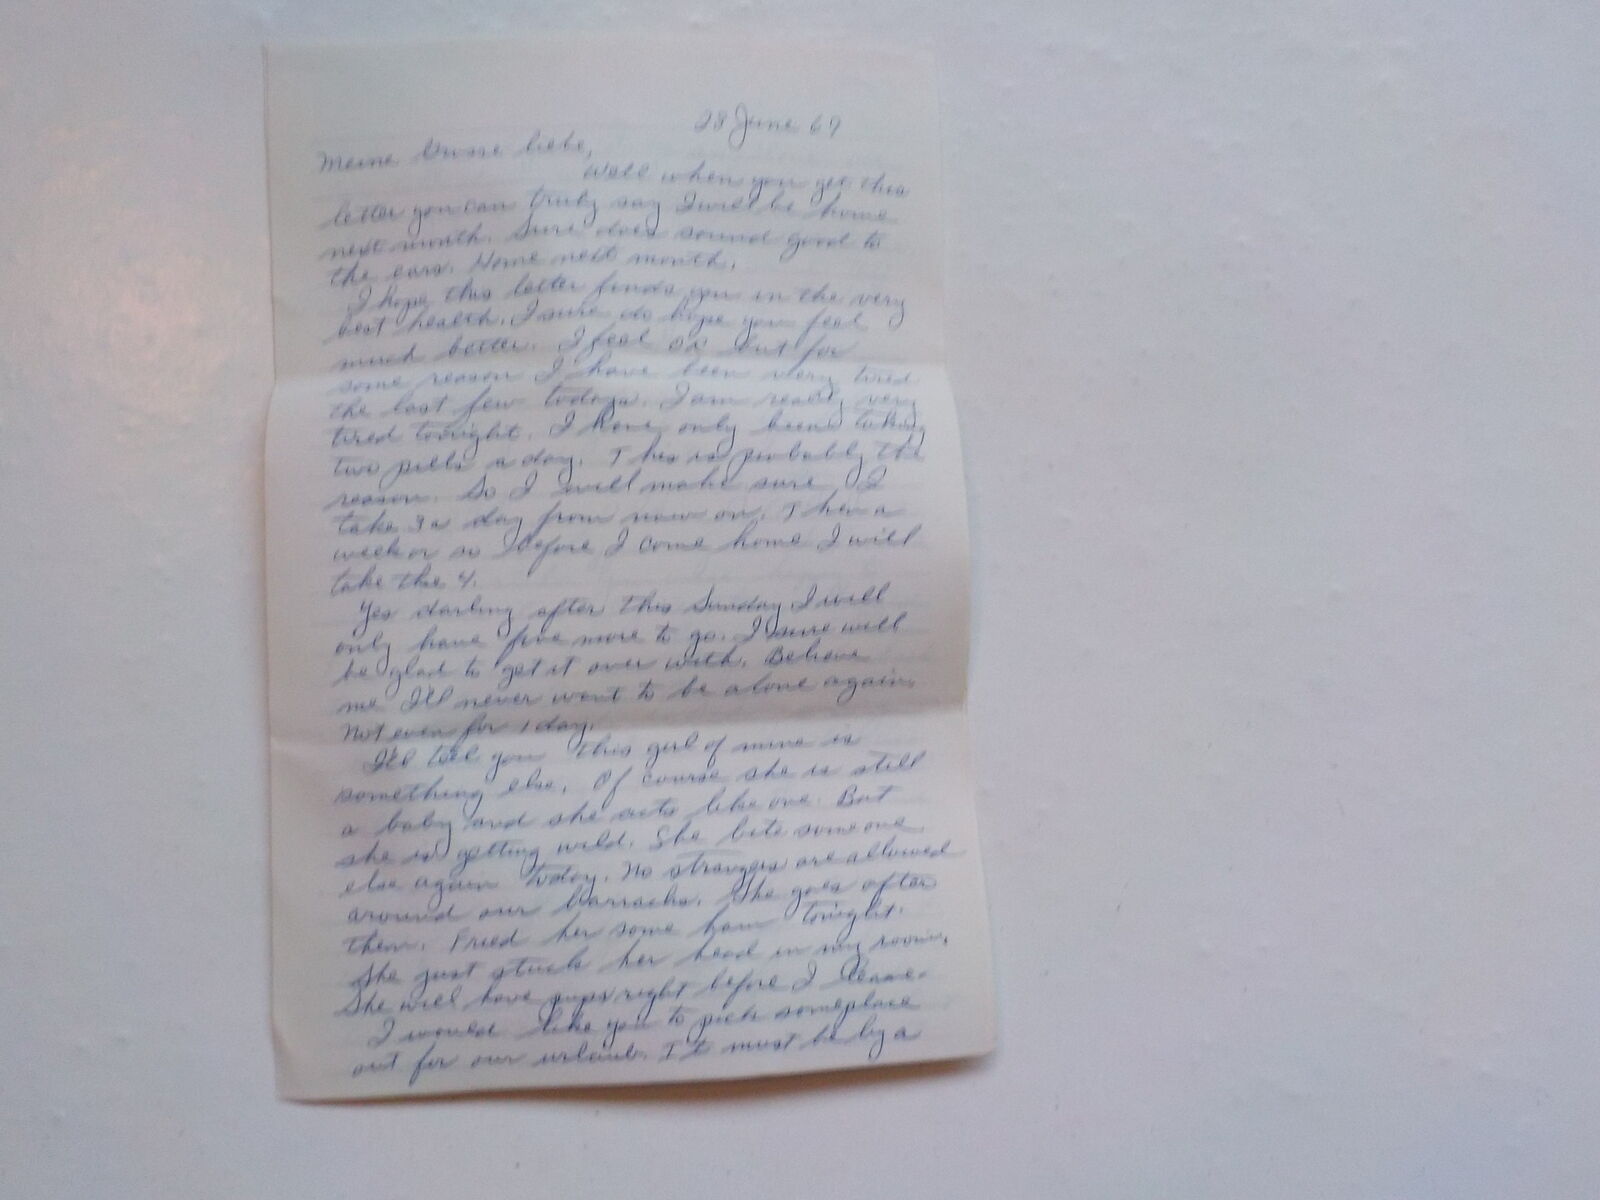 28 June 69
Meine Grosse liebe,
Well when you get this
letter you can truly say I will be home
next month. Sure does sound good to
the ears. Home next month.
I hope this letter finds you in the very
best health. I sure do hope you feel
much better. I feel OK but for
some reason I have been very tired
the last few todays. I am really very
tired tonight. I have only been taking
two pills a day. This is probably the
reason. So I will make sure I
take 3 a day from now on. Then a
week or so before I come home I will
take the 4.
Yes darling after this Sunday I will
only have five more to go. I sure will
be glad to get it over with. Believe
me I'll never want to be alone again.
Not even for 1 day.
I'll tell you this girl of mine is
something else. Of course she is still
a baby and she acts like one. But
she is getting wild. She bite someone
else again today. No strangers are allowed
around our barracks. She goes after
them. Fried her some ham tonight.
She just stuck her head in my room.
She will have pups right before I leave.
I would like you to pick someplace
out for our urlaub. It must be by a